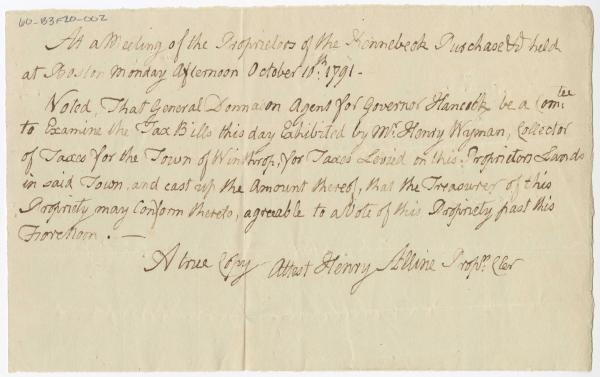 60-B3F20-002
At a Meeting of the Proprietors of the Kennebeck Purchase &c held
at Boston Monday Afternoon October 10th 1791-
Voted, That General Donnason Agent for Governor Hancock be a Comtee
to Examine the Tax Bills this day Exhibited by Mr. Henry Wyman, Collector
of Taxes for the Town of Winthrop, for Taxes Levied on this Proprietors Lands
in said Town, and cast up the Amount thereof, that the Treasurer of this
Propriety may Conform thereto, agreable to a Vote of this Propriety past this
Forenoon. —
A true Copy Attest Henry Alline Propr. Cler